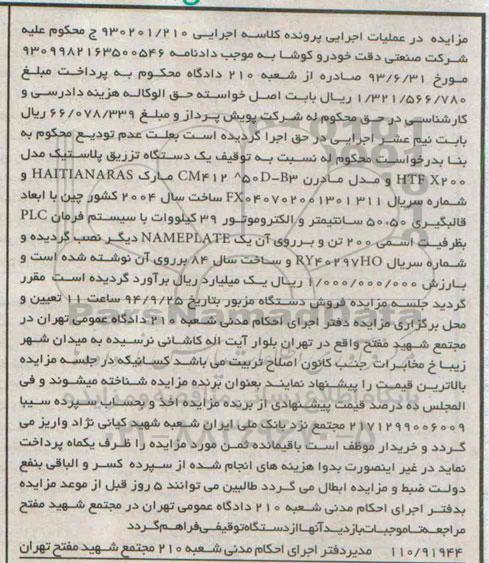 مزایده در عملیات اجرایی پرونده کلاسه اجرایی ۹۳۰۲۰۱/۲۱۰ ج محکوم علیه
شرکت صنعتی دقت خودرو کوشا به موجب دادنامه ۹۳۰۹۹۸۲۱۶۳۵۰۰۵۴۶
مورخ ۹۳/۶/۳۱ صادره از شعبه ۲۱۰ دادگاه محکوم به پرداخت مبلغ
۱/۳۲۱/۵۶۶/۷۸۰ ریال بابت اصل خواسته حق الوکاله هزینه دادرسی و
کارشناسی در حق محکوم له شرکت پویش پرداز و مبلغ ۶۶/۰۷۸/۳۳۹ ریال
بابت نیم عشر اجرایی در حق اجرا گردیده است بعلت عدم تودیع محکوم به
بنا بدرخواست محکوم له نسبت به توقیف یک دستگاه تزریق پلاستیک مدل
HTF X۲۰۰ و مدل مادرن CM۴۱۲ ^۵۰D-B۳ مارک HAITIANARAS و
شماره سریال FX۰۴۰۷۰۲۰۰۱۳۰۱۳۱۱ ساخت سال ۲۰۰۴ کشور چین با ابعاد
قالبگیری ۵۰.۵۰ سانتیمتر و الکتروموتور ۳۹ کیلووات با سیستم فرمان PLC
بظرفیت اسمی ۲۰۰ تن و بر روی آن یک NAMEPLATE دیگر نصب گردیده و
شماره سریال RY۴۰۲۹۷HO و ساخت سال ۸۴ برروی آن نوشته شده است و
با ارزش ۱/۰۰۰/۰۰۰/۰۰۰ ریال یک میلیارد ریال برآورد گردیده است مقرر
گردید جلسه مزایده فروش دستگاه مزبور بتاریخ ۹۴/۹/۲۵ ساعت ۱۱ تعیین و
محل برگزاری مزایده دفتر اجرای احکام مدنی شعبه ۲۱۰ دادگاه عمومی تهران در
مجتمع شهید مفتح واقع در تهران بلوار آیت اله کاشانی نرسیده به میدان شهر
زیبا خ مخابرات جنب کانون اصلاح تربیت می باشد کسانیکه در جلسه مزایده
بالاترین قیمت را پیشنهاد نمایند بعنوان برنده مزایده شناخته میشوند و فی
المجلس ده درصد قیمت پیشنهادی از برنده مزایده اخذ و بحساب سپرده سیبا
۲۱۷۱۲۹۹۰۰۶۰۰۹ مجتمع نزد بانک ملی ایران شعبه شهید کیانی نژاد واریز می
گردد و خریدار موظف است باقیمانده ثمن مورد مزایده را ظرف یکماه پرداخت
نماید در غیر اینصورت بدوا هزینه های انجام شده از سپرده کسر و الباقی بنفع
دولت ضبط و مزایده ابطال می گردد طالبین می توانند ۵ روز قبل از موعد مزایده
بدفتر اجرای احکام مدنی شعبه ۲۱۰ دادگاه عمومی تهران در مجتمع شهید مفتح
مراجعه تا موجبات بازدید آنها از دستگاه توقیفی فراهم گردد
۱۱۰/۹۱۹۴۴ مدیردفتر اجرای احکام مدنی شعبه ۲۱۰ مجتمع شهید مفتح تهران